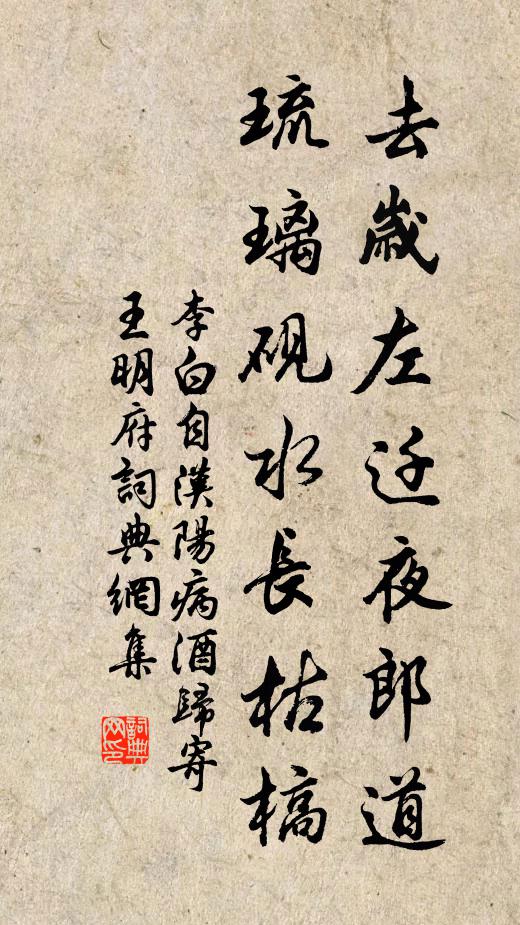 去歲左迁夜郎道
琉璃硯水長枯槁
李白自漢陽病酒歸寄
王明府詞典網集
詞典
网印